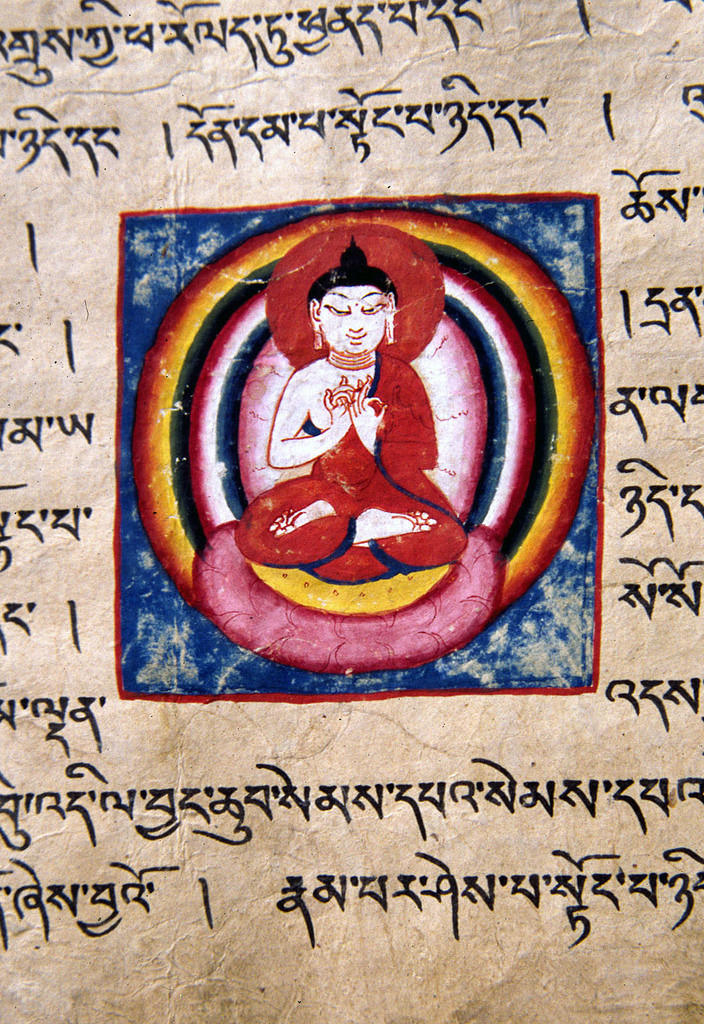 འགྲུས་ཀྱི་ཕ་རོལད་ཏུ་ཕྱིནད་པ་དང
ཉིད་དང་ །དོན་དམ་པ་སྟོང་པ་ཉིད་དང་ །
། ཆོས་
། །དྲན་
མ་ཨ ན་ལ
ཉིད་ད
། སོ་སོ
ལྡན་ འདས
འདི་ལི་བྱང་ཆུབ་སེམས་དཔའ་སེམས་དཔའ
ཞེས་བྱའོ་ ། རྣམ་པར་ཤེས་པ་སྟོང་པ་ཉི